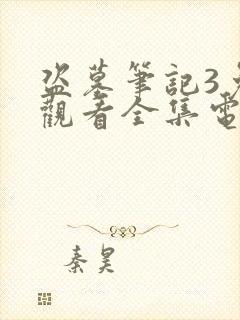 盗墓筆記3免
觀看全集電
秦昊